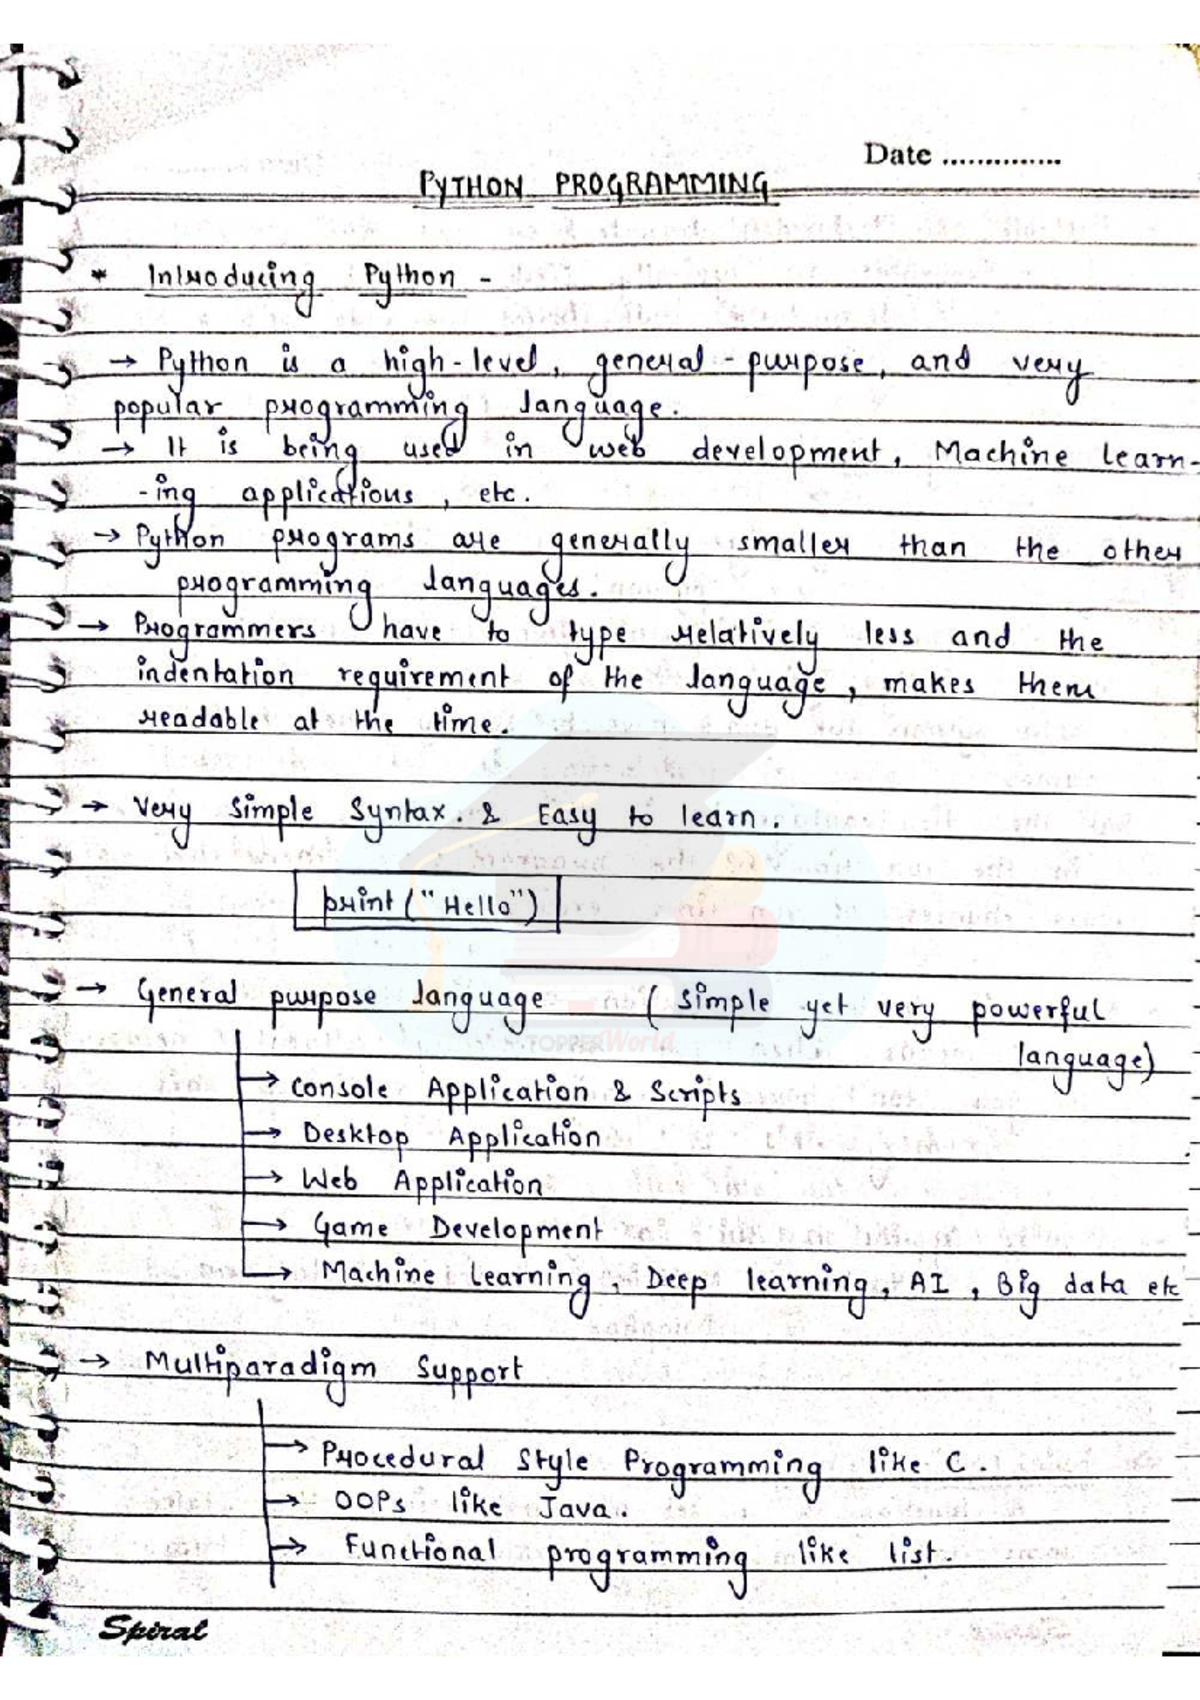 Date ..............
PYTHON PROGRAMMING
* Introducing Python -
→ Python is a high-level, general-purpose, and very
popular programming language.
→ It is being used in web development, Machine learn-
-ing applications, etc.
→ Python programs are generally smaller than the other
programming languages.
→ Programmers have to type relatively less and the
indentation requirement of the language, makes them
readable at the time.
→ Very Simple Syntax. & Easy to learn.
print("Hello")
→ General purpose language (Simple yet very powerful
language)
→ Console Application & Scripts
→ Desktop Application
→ Web Application
→ Game Development
→ Machine Learning, Deep learning, AI, Big data etc
→ Multiparadigm Support
→ Procedural Style Programming like C.
→ OOPs like Java.
→ Functional programming like list.
Spiral
TOPPERWorld